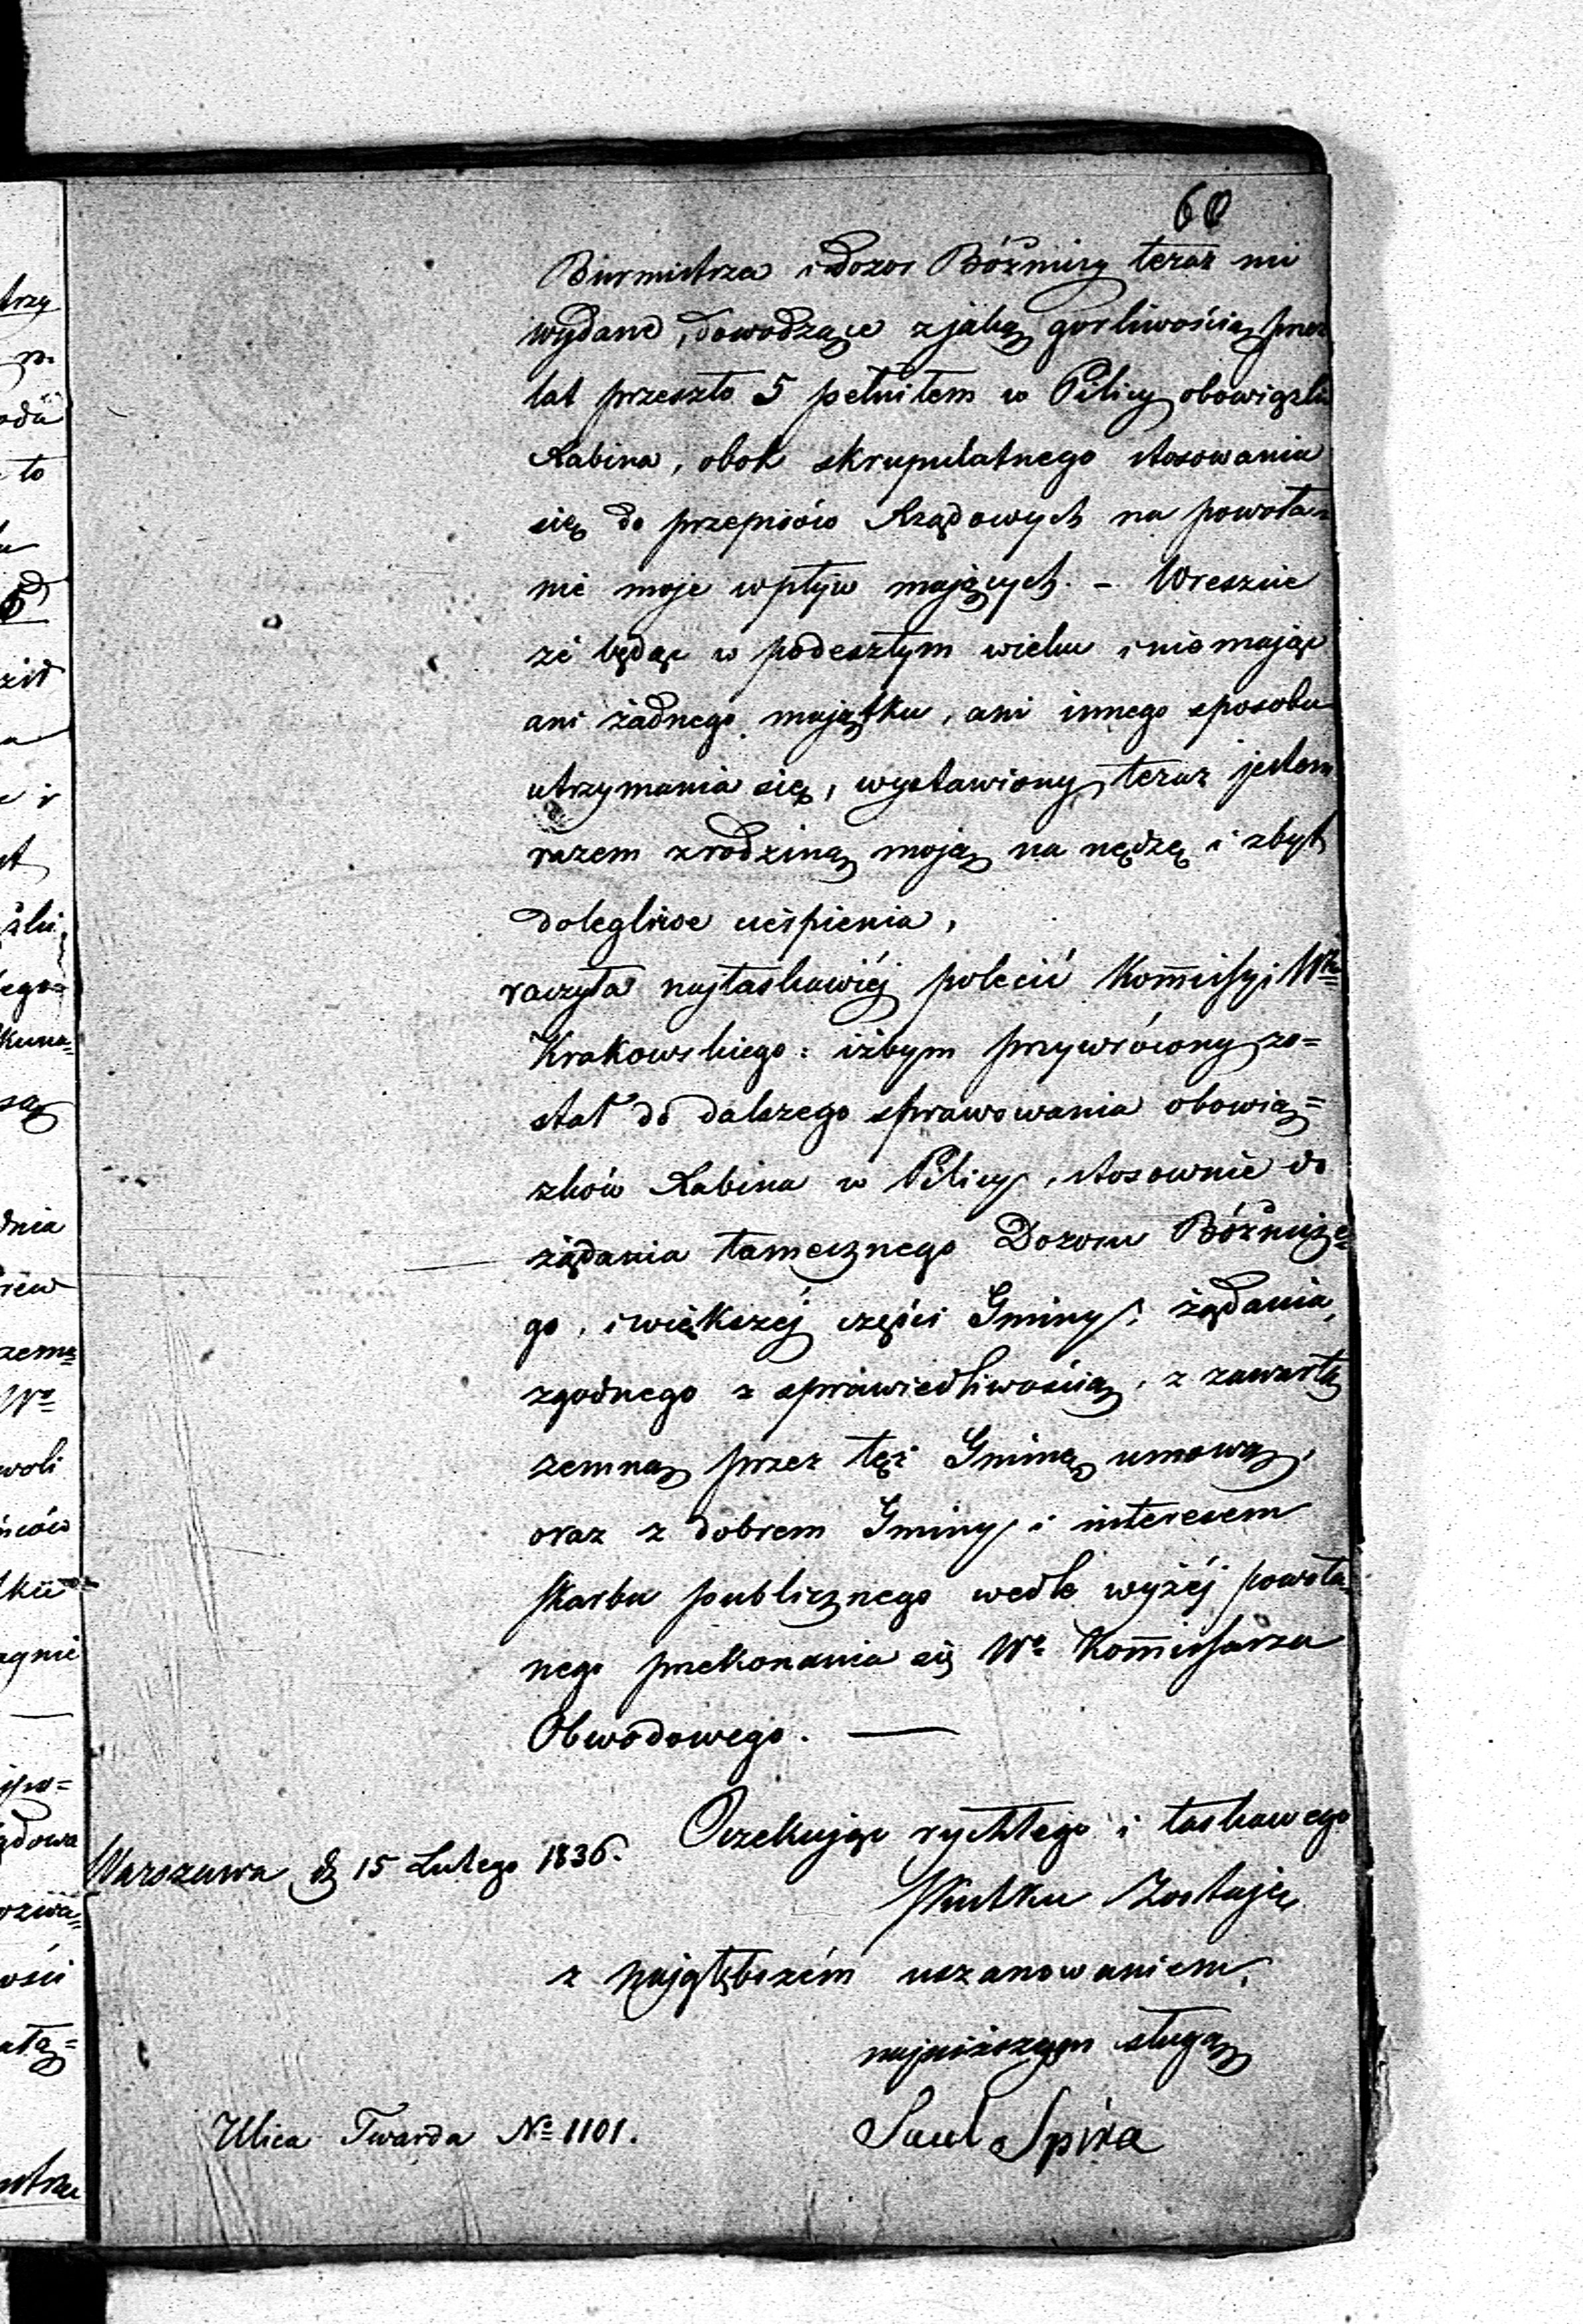 60
Burmistrza i Dozor Bóżniczy teraz mi
wydane, dowodzące z jaką gorliwością przez
lat przeszło 5 pełniłem w Pilicy obowiązki
Rabina, obok skrupulatnego stosowania
się do przepisów Rządowych na powoła=
nie moje wpływ mających. – Wreszcie
że będąc w podeszłym wieku i nie mając
ani żadnego majątku, ani innego sposobu
utrzymania się, wystawiony teraz jestem
razem z rodziną moją na nędzę i zbyt
dolegliwe cierpienia,
raczyła najłaskawiéj polecić Kommissyi Wa
Krakowskiego: iżbym przywrócony zo=
stał do dalszego sprawowania obowią=
zków Rabina w Pilicy, stosownie do
żądania tamecznego Dozoru Bóżnicze=
go, i większéj części Gminy; żądania,
zgodnego z sprawiedliwością, z zawartą
zemną przez tęż Gminę umową,
oraz z dobrem Gminy i interesem
Skarbu publicznego wedle wyżéj powoła=
nego przekonania się Wo Kommissarza
Obwodowego. —
Oczekując rychłego i łaskawego
Warszawa d 15 Lutego 1836.
Skutku zostaję
z najgłębszém uszanowaniem,
najniższym sługą
Saul Spira
Ulica Twarda No 1101.
trzy
to
zid
ego=
kuna=
dnia
zema=
Wo
woli
ców
gnie
dowa
ości